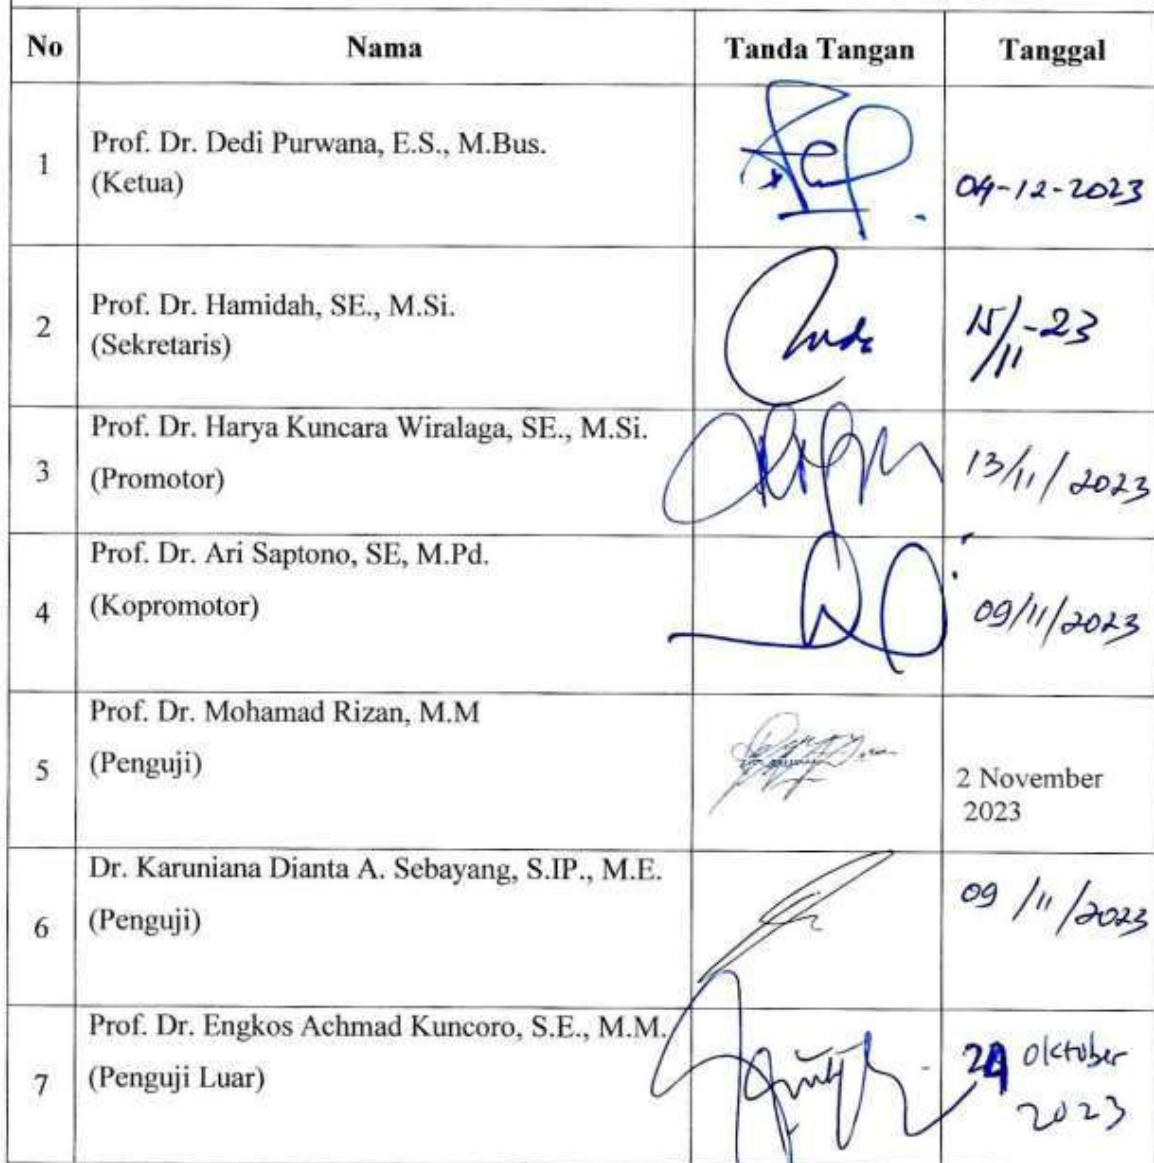 No Nama Tanda Tangan Tanggal
1 Prof. Dr. Dedi Purwana, E.S., M.Bus.
(Ketua)
04-12-2023
2 Prof. Dr. Hamidah, SE., M.Si.
(Sekretaris)
15/11-23
3 Prof. Dr. Harya Kuncara Wiralaga, SE., M.Si.
(Promotor)
13/11/2023
4 Prof. Dr. Ari Saptono, SE, M.Pd.
(Kopromotor)
09/11/2023
5 Prof. Dr. Mohamad Rizan, M.M
(Penguji)
2 November
2023
6 Dr. Karuniana Dianta A. Sebayang, S.IP., M.E.
(Penguji)
09/11/2023
7 Prof. Dr. Engkos Achmad Kuncoro, S.E., M.M.
(Penguji Luar)
Oktober
2023